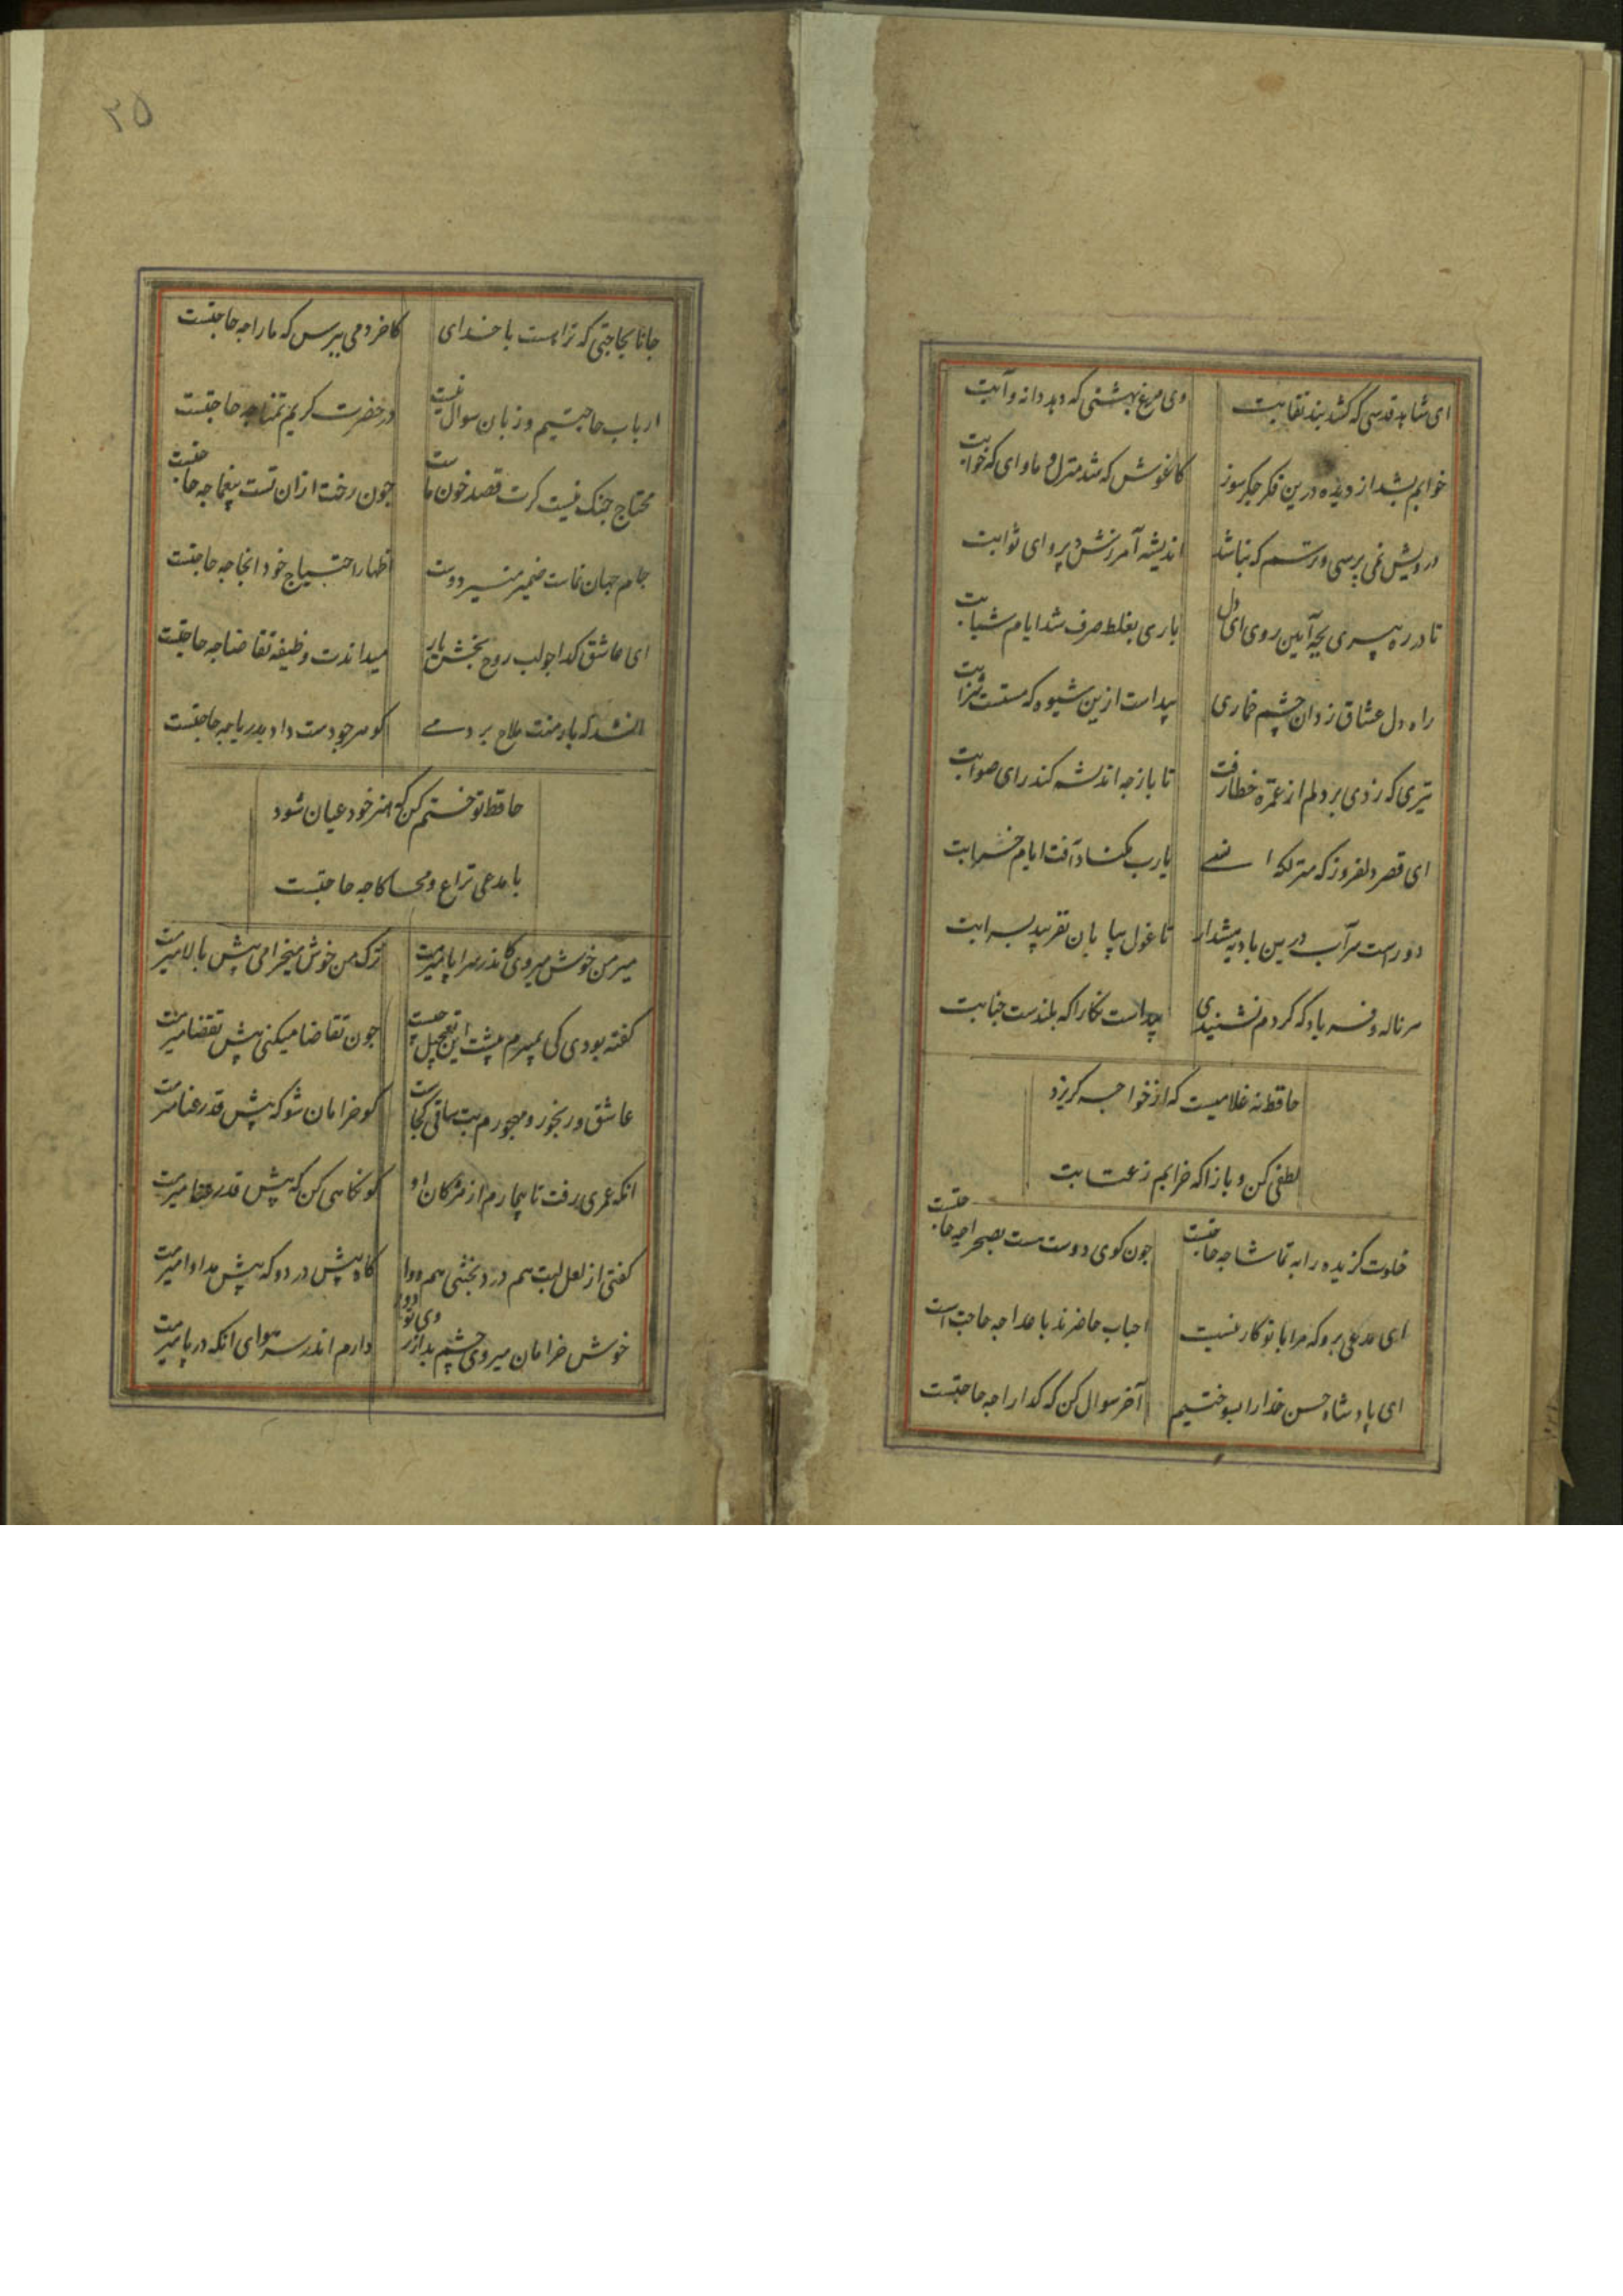 ای شاهد قدسی که کشد بند نقابت وی مرغ بهشتی که دهد دانه و آبت
خوابم بشد از دیده درین فکر جگرسوز کاغوش که شد منزل و ماوای که خوابت
درویش نمی پرسی و ترسم که نباشد اندیشه آمرزش و پروای ثوابت
تا در ره پیری بچه آیین روی ای دل باری بغلط صرف شد ایام شبابت
راه دل عشاق زد ان چشم خماری پیداست ازین شیوه که مستست شرابت
تیری که زدی بر دلم از غمزه خطا رفت تا باز چه اندیشه کند رای صوابت
ای قصر دلفروز که منزلکه انسی یارب مکناد آفت ایام خرابت
دورست سر آب درین بادیه هشدار تا غول بیابان نفریبد بسرابت
هر ناله و فریاد که کردم نشنیدی پیداست نکارا که بلندست جنابت
حافظ نه غلامیست که از خواجه کریزد
لطفی کن و بازا که خرابم ز عتابت
خلوت کزیده را به تماشا چه حاجتست چون کوی دوست هست بصحرا چه حاجتست
ای مدعی برو که مرا با تو کار نیست احباب حاضرند باعدا چه حاجت است
ای پادشاه حسن خدا را بسوختیم آخر سوال کن که کدا را چه حاجتست
۲۵
جانا بحاجتی که ترا هست با خدای کاخر دمی بپرس که ما را چه حاجتست
ارباب حاجتیم و زبان سوال نیست در حضرت کریم تمنا چه حاجتست
محتاج جنک نیست کرت قصد خون ماست چون رخت ازان تست بیغما چه حاجتست
جام جهان نماست ضمیر منیر دوست اظهار احتیاج خود انجا چه حاجتست
ای عاشق کدا چو لب روح بخش یار میداندت وظیفه تقاضا چه حاجتست
انشد که بار منت ملاح بردمی کوهر چو دست داد بدریا چه حاجتست
حافظ تو ختم کن که هنر خود عیان شود
با مدعی نزاع و محاکا چه حاجتست
میر من خوش میروی کاندر سرا پا میرمت ترک من خوش میخرامی پیش بالا میرمت
کفته بودی کی بمیرم پیشت این تعجیل چیست چون تقاضا میکنی پیش تقضا میرمت
عاشق و رنجور و مهجورم بت ساقی کجاست کو خرامان شو که پیش قد رعنا میرمت
انکه عمری رفت تا بیمارم از مژکان او کو نکاهی کن که پیش قد رعنا میرمت
کفتی از لعل لبت هم درد بخشی هم دوا کاه پیش درد و که پیش مداوا میرمت
خوش خرامان میروی چشم بد از روی تو دور دارم اندر سر هوای انکه در پا میرمت